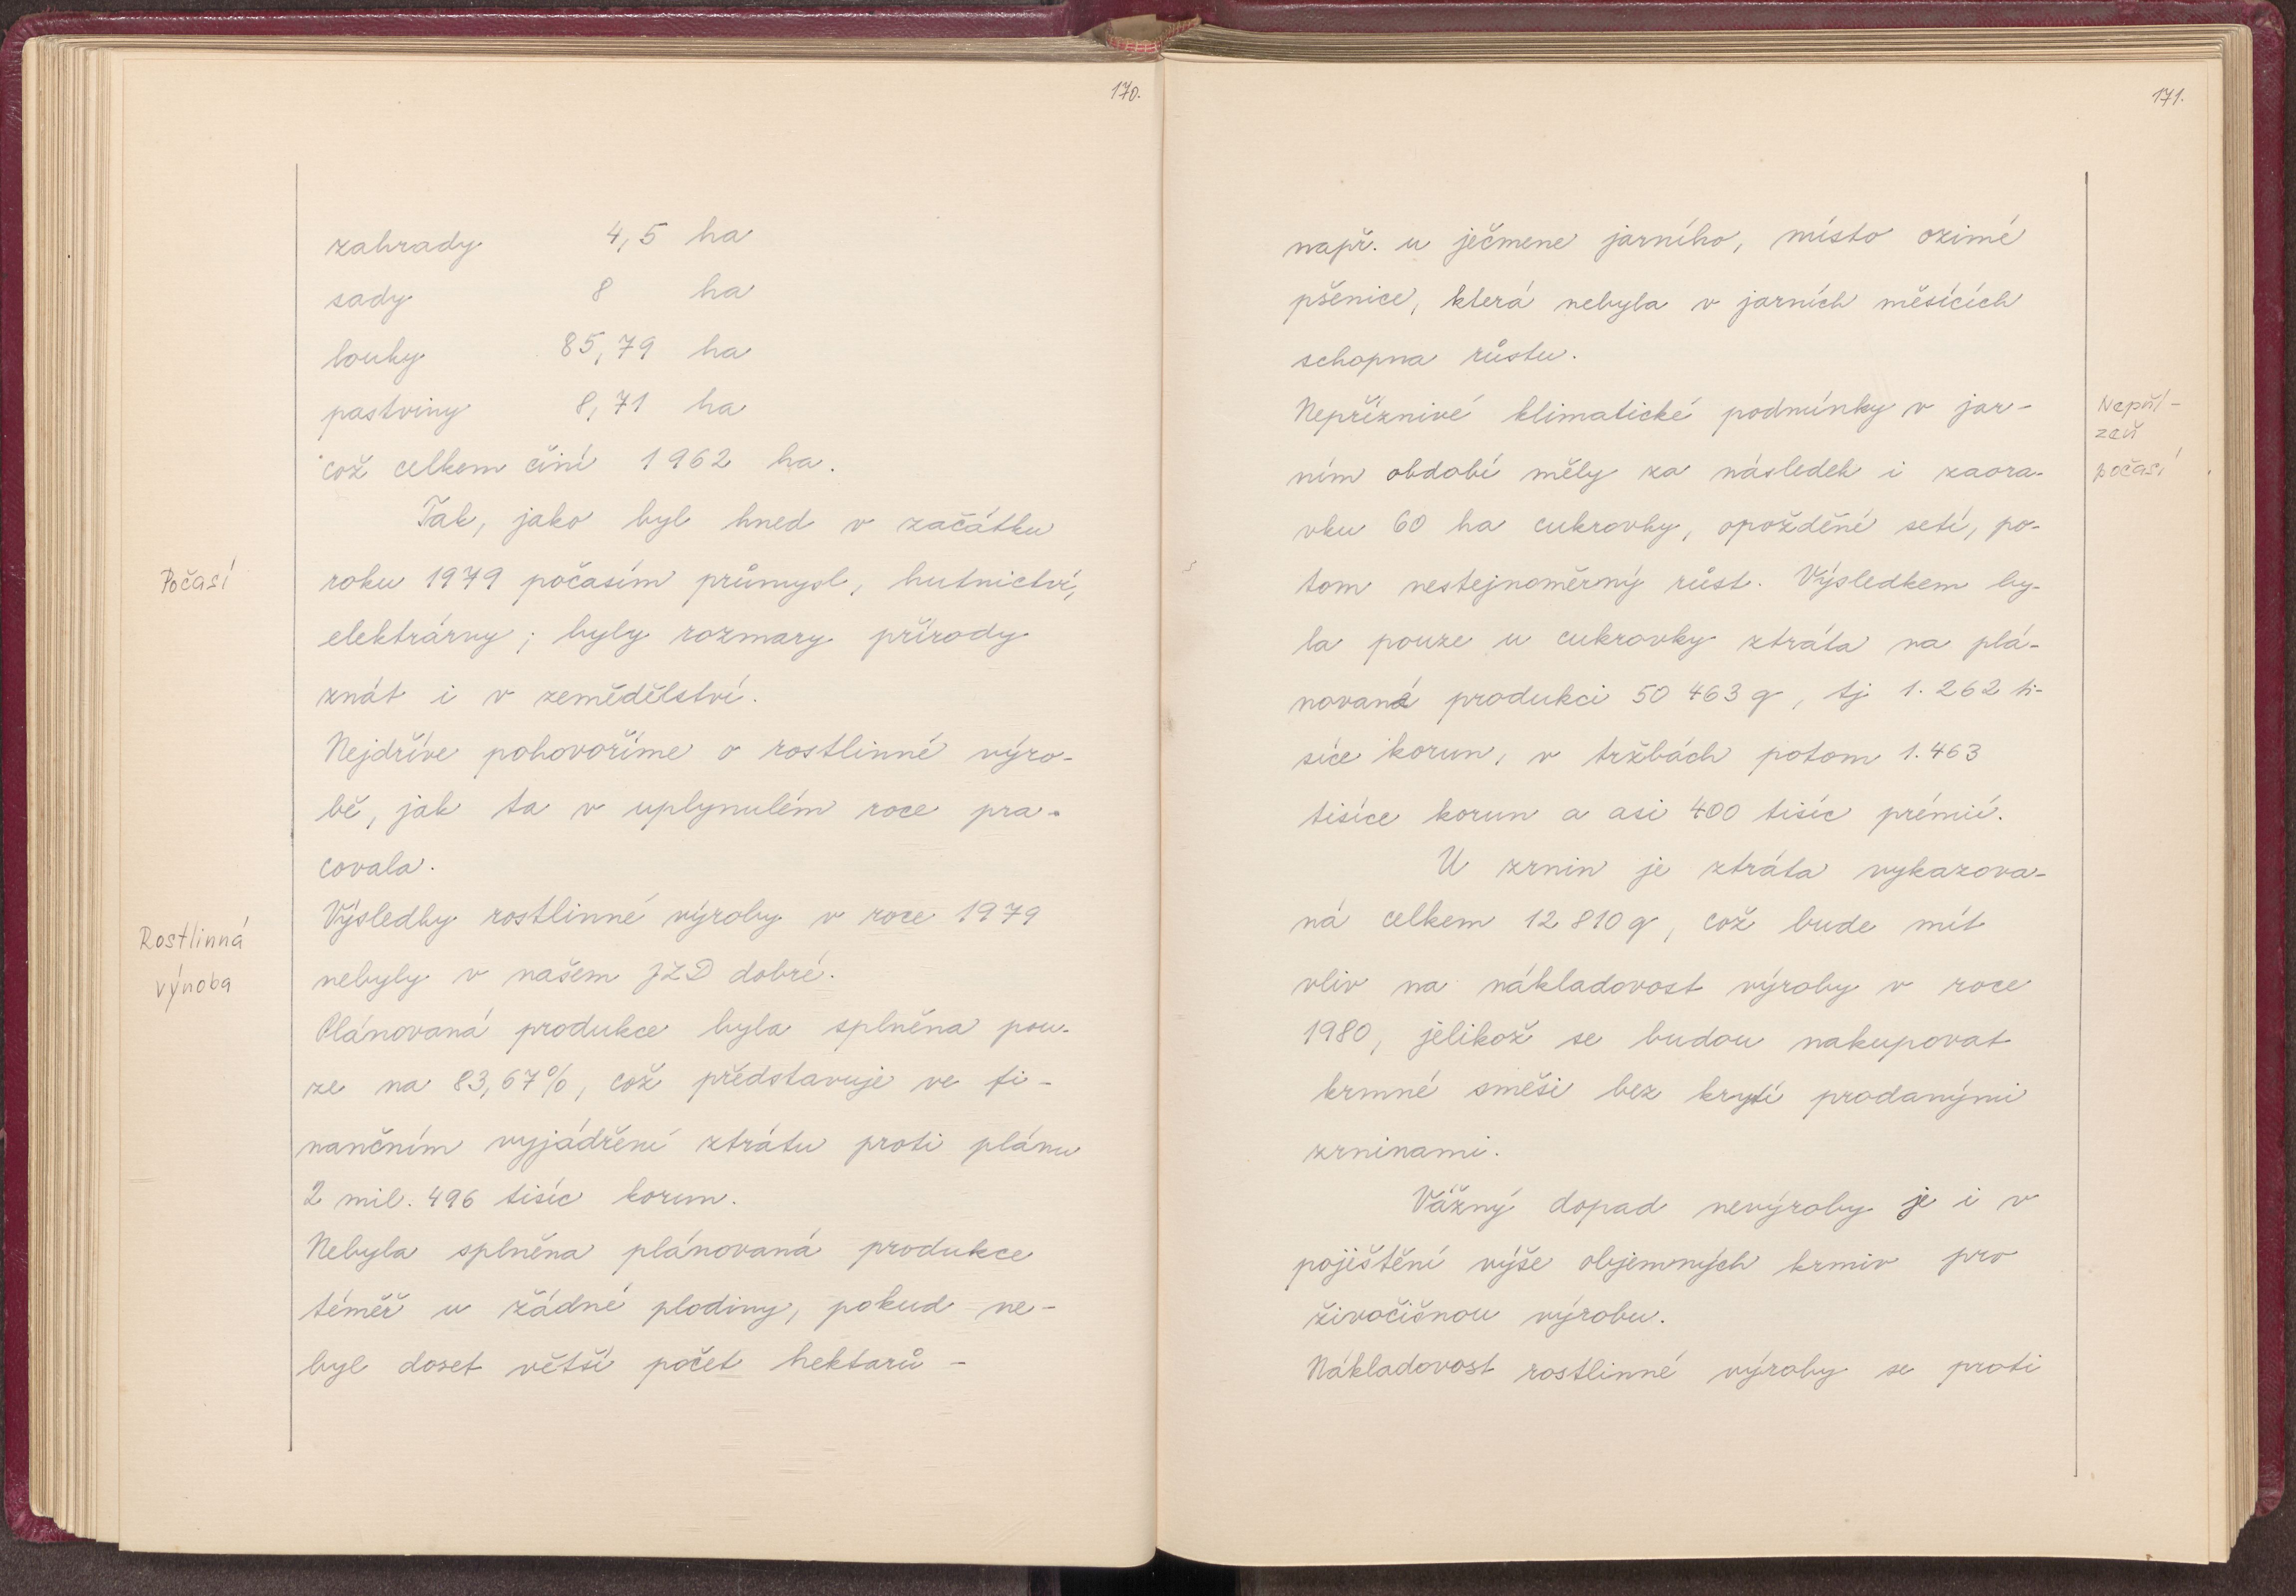 170.
zahrady 4,5 ha
sady 8 ha
louky 85,79 ha
pastviny 8,71 ha
což celkem činí 1962 ha.
Tak, jako byl hned v začátku
Počasí
roku 1979 počasím průmysl, hutnictví,
elektrárny; byly rozmary přírody
znát i v zemědělství.
Nejdříve pohovoříme o rostlinné výro-
bě, jak ta v uplynulém roce pra-
covala.
Rostlinná
výroba
Výsledky rostlinné výroby v roce 1979
nebyly v našem JZD dobré.
Plánovaná produkce byla splněna pou-
ze na 83,67%, což představuje ve fi-
nančním vyjádření ztrátu proti plánu
2 mil. 496 tisíc korun.
Nebyla splněna plánovaná produkce
téměř u žádné plodiny, pokud ne-
byl doset větší počet hektarů -
171.
např. u ječmene jarního, místo ozimé
pšenice, která nebyla v jarních měsících
schopna růstu.
Nepříznivé klimatické podmínky v jar-
ním období měly za následek i zaora-
vku 60 ha cukrovky, opoždění setí, po-
tom nestejnoměrný růst. Výsledkem by-
la pouze u cukrovky ztráta na plá-
nované produkci 50 463 q, tj 1. 262 ti-
síce korun, v tržbách potom 1. 463
tisíce korun a asi 400 tisíc prémií.
U zrnin je ztráta vykazova-
ná celkem 12 810 q, což bude mít
vliv na nákladovost výroby v roce
1980, jelikož se budou nakupovat
krmné směsi bez krytí prodanými
zrninami.
Vážný dopad nevýroby je i v
pojištění výše objemných krmiv pro
živočišnou výrobu.
Nákladovost rostlinné výroby se proti
počasí